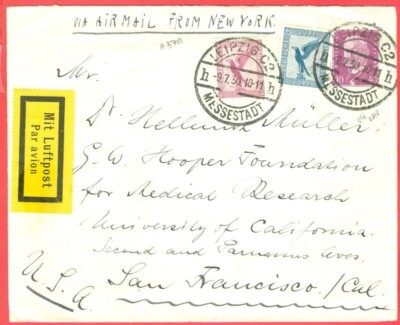 VIA AIR MAIL FROM NEW YORK.
LEIPZIG C2
h -9.7.30.10-11 h
MESSESTADT
LEIPZIG C2
-9.7.30.10-11 h
MESSESTADT
Mit Luftpost
Par avion
Mr.
Dr. Hellmuth Müller,
G. W. Hooper Foundation
for Medical Research
University of California
Second and Parnassus Aves.
San Francisco./Cal.
U.S.A.